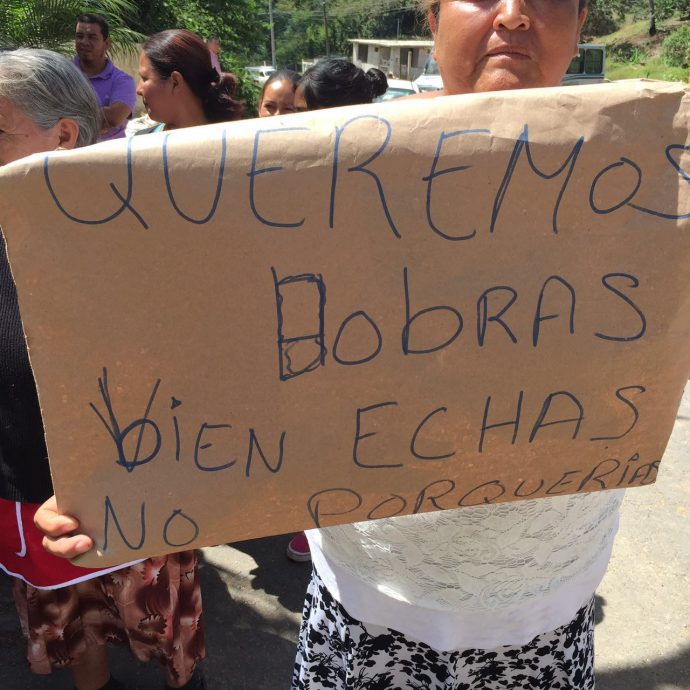 QUEREMOS
obRAS
bIEN ECHAS
NO PORQUERÍAS